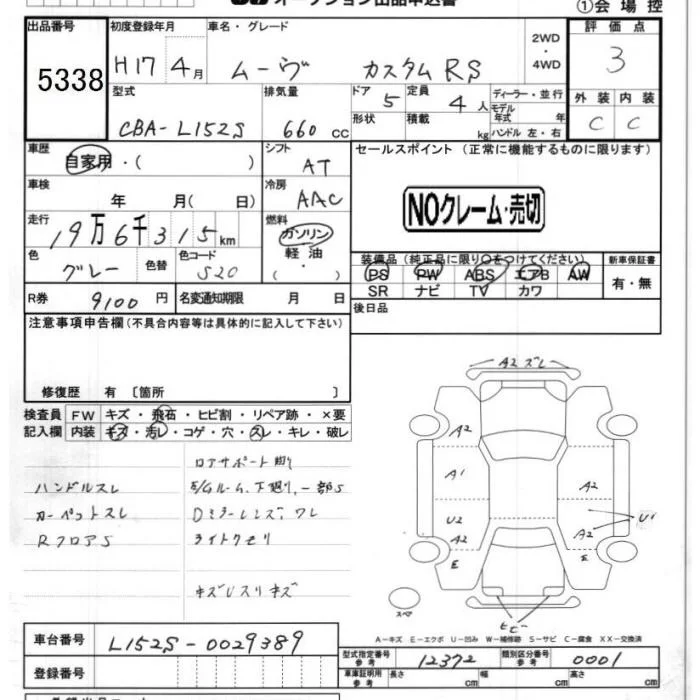 オークション出品申込書
①会場控
出品番号 初度登録年月 車名・グレード 評価点
5338 H17 4月 ムーヴ カスタムRS 2WD・4WD 3
型式 排気量 ドア 5 定員 4人 ディーラー・並行 外装 内装
CBA-L152S 660cc 形状 積載 kg モデル年式 年 ハンドル 左・右 C C
車歴 自家用・( ) シフト AT セールスポイント (正常に機能するものに限ります)
車検 年 月( 日) 冷房 AAC
NOクレーム・売切
走行 19万6千315km 燃料 ガソリン 軽油・( )
色 グレー 色替 色コード S20
装備品(純正品に限り○をつけてください) 新車保証書
PS PW ABS エアB AW 有・無
SR ナビ TV カワ
R券 9100円 名変通知期限 月 日 後日品
注意事項申告欄(不具合内容等は具体的に記入して下さい)
修復歴 有 〔箇所 〕
検査員 FW キズ・飛石・ヒビ割・リペア跡・×要
記入欄 内装 キズ・汚レ・コゲ・穴・スレ・キレ・破レ
ハンドルスレ
カーペットスレ
RフロアS
ロアサポート
E/Gルーム、下廻り、一部S
Dミラーレンズ、ワレ
ライトクモリ
キズUスリキズ
A2 ズレ
A2
A1 A2
U2 U1
A2 A2
E E
スペア ヒビ
A-キズ E-エクボ U-凹み W-補修跡 S-サビ C-腐食 XX-交換済
車台番号 L152S-0029389
型式指定番号 参考 12372 類別区分番号 参考 0001
登録番号 車庫証明用 参考 長さ cm 幅 cm 高さ cm